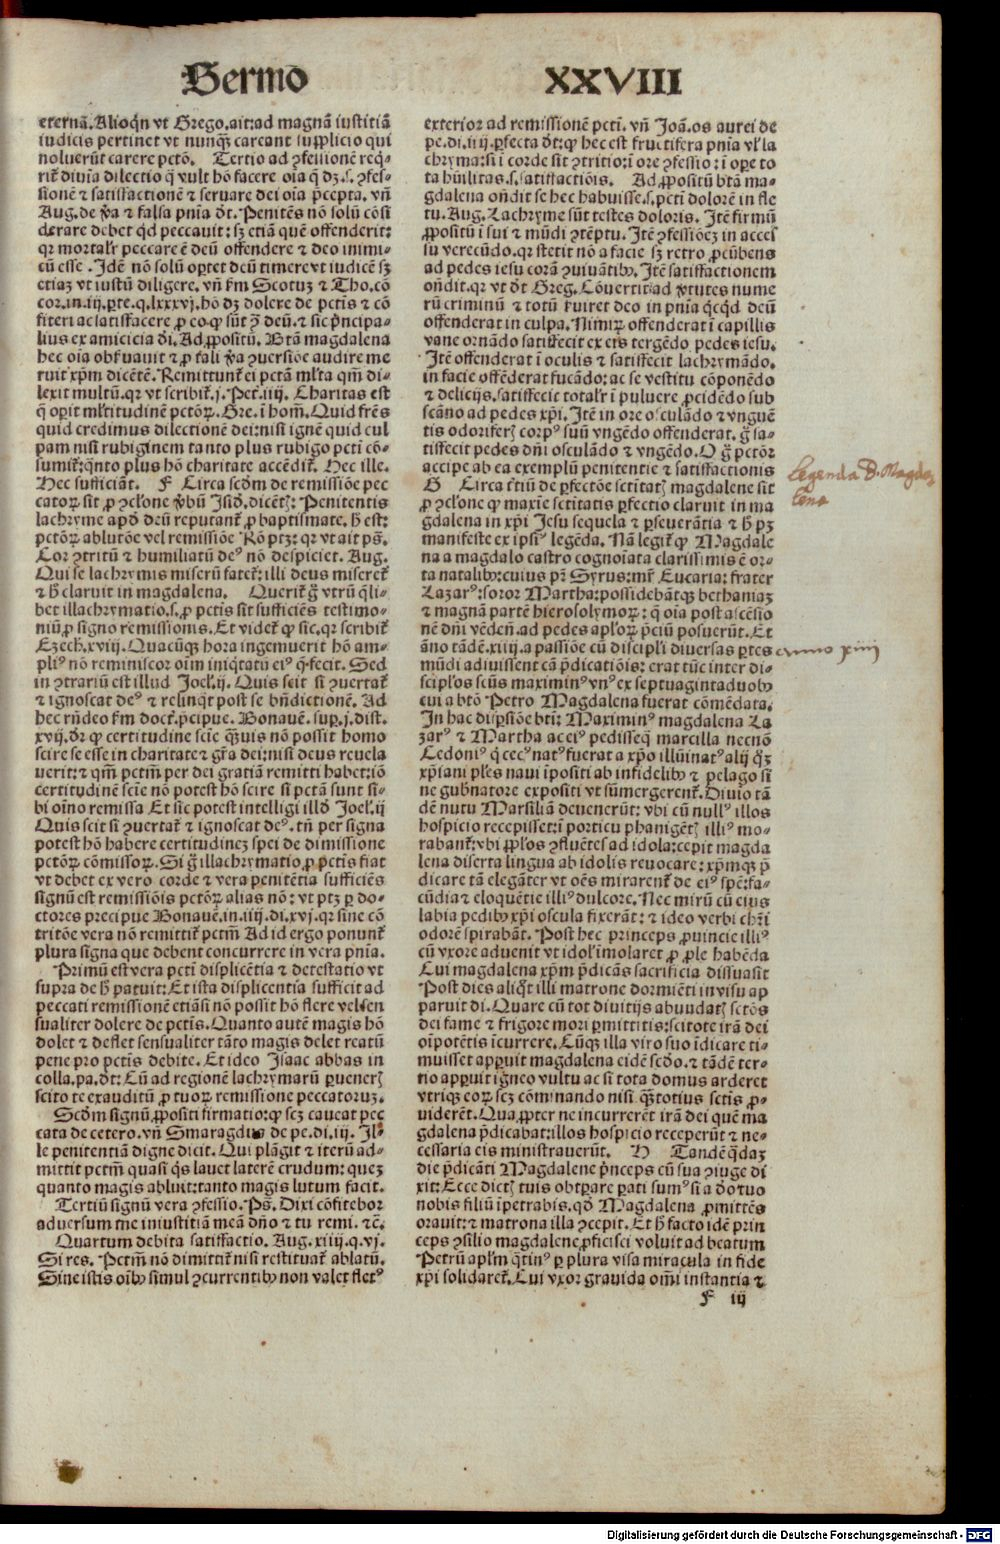 Sermo XXVIII
eternā. Alioqn̄ vt Grego. ait: ad magnā iustitiā
iudicis pertinet vt nunqꝫ careant supplicio qui
noluerūt carere pctō. Tertio ad ꝯfessionē req̇-
rit̄ diuīa dilectio q̄ vult hoīe facere oīa q̄ dꝫ .s. ꝯfes-
sionē ⁊ satisfactionē ⁊ seruare dei oīa p̄cepta. vn̄
Aug. de v̄a ⁊ falsa pnīa dt̄. Penitēs nō solū cōsi
derare debet qd̄ peccauit: sꝫ etiā quē offenderit:
qꝛ mortalr̄ peccare ē deū offendere ⁊ deo inimi-
cū esse. Idē nō solū oꝑtet deū timere vt iudicē sꝫ
etiaꝫ vt iustū diligere. vn̄ fm̄ Scotuꝫ ⁊ Tho. cō
cor. in .iij. ꝑte. q. lxxxvj. hō dꝫ dolere de pctīs ⁊ cō
fiteri ac satisfacere ꝓ eo ꝙ sūt ꝯ̄ deū. ⁊ sic p̄ncipa-
lius ex amicicia di. Ad ꝓpositū. Btā magdalena
hec oīa obẜuauit ⁊ ꝓ tali v̄a ꝯuersiōe audire me
ruit xp̄m dicētē. Remittunt̄ ei pctā ml̄ta qm̄ di-
lexit multū. qꝛ vt scribit̄ .j. Pet. iiij. Charitas est
q̄ oꝑit ml̄titudinē pctōꝝ. Gre. ī hom̄. Quid frēs
quid credimus dilectionē dei: nisi ignē quid cul
pam nisi rubiginem tanto plus rubigo pcti cō-
sumit̄: q̄nto plus hō charitate accēdit̄. Hec ille.
Hec sufficiāt. F Circa scd̄m de remissiōe pec
catoꝝ sit ꝓ ꝯclone v̄bū Isid. dicētꝭ: Penitentis
lachryme apd̄ deū reputant̄ ꝓ baptismate. h̄ est:
pctōꝝ ablutōe vel remissiōe Rō ptꝫ: qꝛ vt ait ps̄.
Cor ꝯtritū ⁊ humiliatū deꝰ nō despiciet. Aug.
Qui se lachrymis miserū fatet̄: illi deus miseret̄
⁊ h̄ claruit in magdalena. Querit̄ g̊ vtrū q̄li-
bet illachrymatio .s. ꝓ pctīs sit sufficiēs testimo-
niū ꝓ signo remissionis. Et videt̄ ꝙ sic. qꝛ scribit̄
Ezech. xviij. Quacūqꝫ hora ingemuerit hō am-
pliꝰ nō reminiscor oīm iniq̇tatū eiꝰ q̄ fecit. Sed
in ꝯtrariū est illud Joel. ij. Quis scit si ꝯuertat̄
⁊ ignoscat deꝰ ⁊ relinq̄t post se bn̄dictionē. Ad
hec rn̄deo fm̄ doct. p̄cipue. Bonauē. suꝑ .j. dist.
xvij. dꝛ ꝙ certitudine scīe qꝫuis nō possit homo
scire se esse in charitate ⁊ gr̄a dei: nisi deus reuela
uerit: ⁊ qm̄ pctm̄ per dei gratiā remitti habet: iō
certitudinē scīe nō potest hō scire si pctā sunt si-
bi oīno remissa Et sic potest intelligi illd̄ Joel. ij
Quis scit si ꝯuertat̄ ⁊ ignoscat deꝰ. tn̄ per signa
potest hō habere certitudineꝫ spei de dimissione
pctōꝝ cōmissoꝝ. Si g̊ illachrymatio ꝓ pctis fiat
vt debet ex vero corde ⁊ vera penitētia sufficiēs
signū est remissiōis pctōꝝ alias nō: vt ptꝫ ꝑ do-
ctores precipue Bonauē. in .iiij. di. xvj. qꝛ sine cō
tritōe vera nō remittit̄ pctm̄ Ad id ergo ponunt̄
plura signa que debent concurrere in vera pnīa.
Primū est vera pcti displicētia ⁊ detestatio vt
supra de h̄ patuit: Et ista displicentia sufficit ad
peccati remissionē etiāsi nō possit hō flere vel sen
sualiter dolere de pctīs. Quanto autē magis hō
dolet ⁊ deflet sensualiter tāto magis delet reatū
pene pro pctīs debite. Et ideo Isaac abbas in
colla. pa. dt̄: Cū ad regionē lachrymarū ꝑueneꝭ
scito te exauditū ꝓ tuoꝝ remissione peccatoruꝫ.
Scd̄m signū ꝓpositi firmatio: ꝙ scꝫ caueat pec
cata de cetero. vn̄ Smaragdus de pe. di. iij. Il-
le penitentiā digne dicit. Qui plāgit ⁊ iterū ad-
mittit pctm̄ quasi q̇s lauet laterē crudum: queꝫ
quanto magis abluit: tanto magis lutum facit.
Tertiū signū vera ꝯfessio. Ps̄. Dixi cōfitebor
aduersum me iniustitiā meā dn̄o ⁊ tu remi. ⁊c̄.
Quartum debita satisfactio. Aug. xiiij. q. vj.
Si res. Pctm̄ nō dimittit̄ nisi restituat̄ ablatū.
Sine istis oībꝫ simul ꝯcurrentibꝫ non valet fletꝰ
exterior ad remissionē pcti. vn̄ Joā. os aurei de
pe. di. iij. ꝑfecta dt̄: ꝙ hec est fructifera pnīa vl̄ la
chryma: si ī corde sit ꝯtritio: ī ore ꝯfessio: ī oꝑe to
ta hūilitas .s. satisfactiōis. Ad ꝓpositū btā ma-
gdalena on̄dit se hec habuisse .s. pcti dolorē in fle
tu. Aug. Lachryme sūt testes doloris. Itē firmū
ꝓpositū ī sui ⁊ mūdi ꝯtēptu. Itē ꝯfessiōeꝫ in acces
su verecūdo. qꝛ stetit nō a facie sꝫ retro ꝓcūbens
ad pedes iesu corā ꝯuiuātibꝫ. Itē satisfactionem
on̄dit. qꝛ vt dt̄ Greg. Cōuertit ad v̄tutes nume
rū criminū ⁊ totū ẜuiret deo in pnīa q̇cq̇d deū
offenderat in culpa. Nimiꝝ offenderat ī capillis
vane ornādo satisfecit ex eis tergēdo pedes iesu.
Itē offenderat ī oculis ⁊ satisfecit lachrymādo.
in facie offēderat fucādo: ac se vestitu cōponēdo
⁊ delicijs. satisfecit totalr̄ ī puluere ꝓcidēdo sub
scāno ad pedes xp̄i. Itē in ore osculādo ⁊ vngnē
tis odoriferꝭ corpꝰ suū vngēdo offenderat. g̊ sa-
tisfecit pedes dn̄i osculādo ⁊ vngēdo. O g̊ pctōr
accipe ab ea exemplū penitentie ⁊ satisfactionis
G Circa t̄tiū de ꝑfectōe sctītatꝭ magdalene sit
ꝓ ꝯclone ꝙ maxīe sctitatis ꝑfectio claruit in ma
gdalena in xp̄i Jesu sequela ⁊ ꝑseuerātia ⁊ h̄ pꝫ
manifeste ex ipsiꝰ legēda. Nā legit̄ ꝙ Magdale
na a magdalo castro cognoīata clarissimis ē or-
ta natalibꝫ: cuius pr̄ Syrus: mr̄ Eucaria: frater
Lazarꝰ: soror Martha: possidebātqꝫ bethaniaꝫ
⁊ magnā partē hierosolymoꝝ: q̄ oīa post ascēsio
nē dn̄i vēdēn̄. ad pedes apl̄oꝝ p̄ciū posuerūt. Et
āno tādē .xiiij. a passiōe cū discipl̄i diuersas ꝑtes
mūdi adiuissent cā p̄dicatiōis: erat tūc inter di-
scipl̄os scūs maximinꝰ vnꝰ ex septuagintaduobꝫ
cui a btō Petro Magdalena fuerat cōmēdata.
In hac disꝑsiōe btī: Maximinꝰ magdalena La
zarꝰ ⁊ Martha ac eiꝰ pedisseq̄ marcilla necnō
Cedoniꝰ q̇ cecꝰ natꝰ fuerat a xp̄o illūinatꝰ alij qꝫ
xp̄iani ples̄ naui īpositi ab infidelibꝫ ⁊ pelago sī
ne gub̄natore expositi vt sūmergerent̄. Diuīo tā
dē nutu Marsiliā deuenerūt: vbi cū nullꝰ illos
hospicio recepisset: ī porticu phani gētꝭ illiꝰ mo-
rabant̄: vbi ppl̄os ꝯfluētes ad idola: cepit magda
lena diserta lingua ab idolis reuocare: xp̄mqꝫ p̄
dicare tā elegāter vt oēs mirarent̄ de eiꝰ spē: fa-
cūdia ⁊ eloquētie illiꝰ dulcore. Nec mirū cū eius
labia pedibꝫ xp̄i oscula fixerāt: ⁊ ideo verbi chr̄i
odorē spirabāt. Post hec princeps ꝓuincie illiꝰ
cū vxore aduenit vt idol̄ īmolaret ꝓ ꝓle habēda
Cui magdalena xp̄m p̄dicās sacrificia dissuasit
Post dies aliq̄t illi matrone dormiēti in visu ap
paruit di. Quare cū tot diuitijs abundatꝭ sctōs
dei fame ⁊ frigore mori ꝑmittitis: scitote irā dei
oīpotētis īcurrere. Cūqꝫ illa viro suo īdicare ti-
muisset apꝑuit magdalena eidē scd̄o. ⁊ tādē ter-
tio apꝑuit igneo vultu ac si tota domus arderet
vtriqꝫ eoꝝ scꝫ cōminando nisi qꝫtotius sctīs ꝓ-
viderēt. Quaꝓpter ne incurrerēt irā dei quē ma
gdalena p̄dicabat: illos hospicio receperūt ⁊ ne-
cessaria eis ministrauerūt. H Tandē qdaꝫ
die p̄dicāti Magdalene p̄nceps cū sua ꝯiuge di
xit: Ecce dictꝭ tuis obtꝑare ꝑati sumꝰ si a do tuo
nobis filiū īpetrabis. qd̄ Magdalena ꝓmittēs
orauit: ⁊ matrona illa ꝯcepit. Et h̄ facto idē prin
ceps ꝯsilio magdalene ꝓficisci voluit ad beatum
Petrū apl̄m q̄tinꝰ ꝑ plura visa miracula in fide
xp̄i solidaret̄. Cui vxor grauida oīmi instantia ⁊
F iij
Legenda D. Magda-
lena
anno xiiij
Digitalisierung gefördert durch die Deutsche Forschungsgemeinschaft - DFG